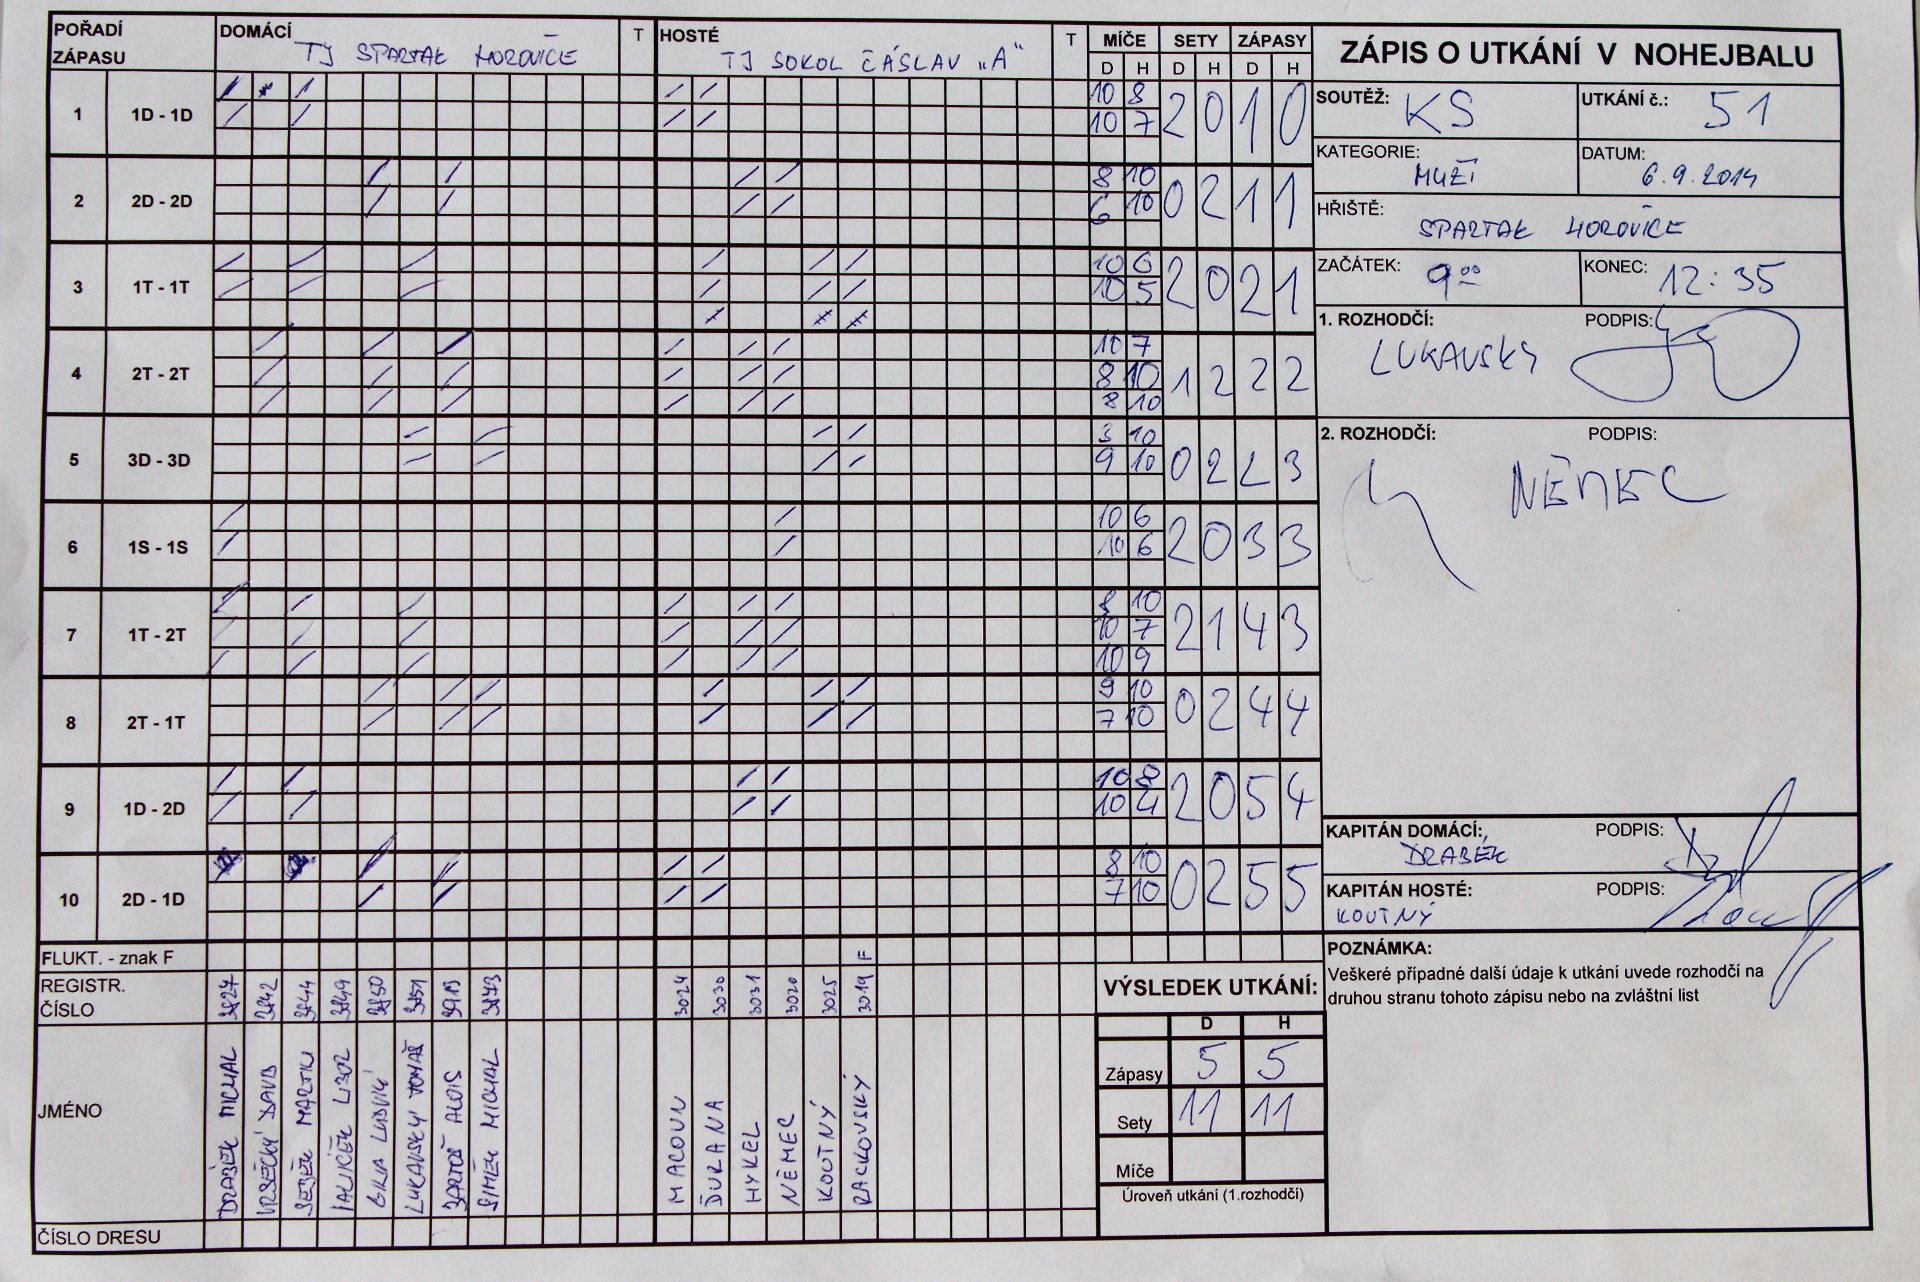 POŘADÍ ZÁPASU DOMÁCÍ TJ SPARTAK HOROVICE T HOSTÉ TJ SOKOL ČÁSLAV „A" T MÍČE SETY ZÁPASY
D H D H D H
1 1D - 1D 10 8 2 0 1 0
10 7
2 2D - 2D 8 10 0 2 1 1
6 10
3 1T - 1T 10 6 2 0 2 1
10 5
4 2T - 2T 10 7 1 2 2 2
8 10
8 10
5 3D - 3D 3 10 0 2 2 3
9 10
6 1S - 1S 10 6 2 0 3 3
10 6
7 1T - 2T 8 10 2 1 4 3
10 7
10 9
8 2T - 1T 9 10 0 2 4 4
7 10
9 1D - 2D 10 8 2 0 5 4
10 4
10 2D - 1D 8 10 0 2 5 5
7 10
FLUKT. - znak F F
REGISTR. ČÍSLO 3827 3842 3844 3849 3850 3851 3913 3873 3024 3030 3031 3020 3025 3019
JMÉNO
DRÁBEK MICHAL
DAVID
ŠEBEK MARTIN
LIBOR
LUDVÍK
LUKAVSKÝ TOMÁŠ
BARTOŠ ALOIS
ŠIMEK MICHAL
MACOUN
ĎURANA
HYKEL
NĚMEC
KOUTNÝ
RACKOVSKÝ
ČÍSLO DRESU
ZÁPIS O UTKÁNÍ V NOHEJBALU
SOUTĚŽ: KS UTKÁNÍ č.: 51
KATEGORIE: MUŽI DATUM: 6.9.2014
HŘIŠTĚ: SPARTAK HOROVICE
ZAČÁTEK: 9 00 KONEC: 12:35
1. ROZHODČÍ: LUKAVSKÝ PODPIS:
2. ROZHODČÍ: PODPIS:
NĚMEC
KAPITÁN DOMÁCÍ: DRÁBEK PODPIS:
KAPITÁN HOSTÉ: KOUTNÝ PODPIS:
POZNÁMKA:
Veškeré případné další údaje k utkání uvede rozhodčí na
druhou stranu tohoto zápisu nebo na zvláštní list
VÝSLEDEK UTKÁNÍ:
D H
Zápasy 5 5
Sety 11 11
Míče
Úroveň utkání (1.rozhodčí)